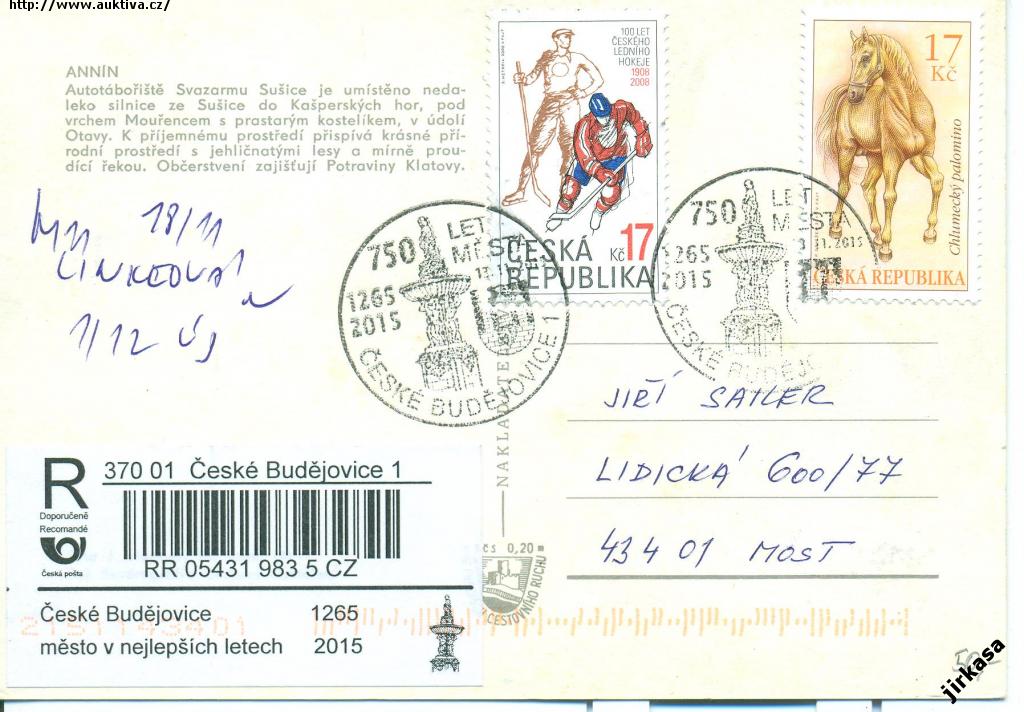 http://www.auktiva.cz/
ANNÍN
Autotábořiště Svazarmu Sušice je umístěno neda-
leko silnice ze Sušice do Kašperských hor, pod
vrchem Mouřencem s prastarým kostelíkem, v údolí
Otavy. K příjemnému prostředí přispívá krásné pří-
rodní prostředí s jehličnatými lesy a mírně prou-
dící řekou. Občerstvení zajišťují Potraviny Klatovy.
100 LET
ČESKÉHO
LEDNÍHO
HOKEJE
1908
2008
ČESKÁ
REPUBLIKA
Kč 17
17
Kč
Chlumecký palomino
ČESKÁ REPUBLIKA
750 LET
MĚSTA
1265
2015
ČESKÉ BUDĚJOVICE 1
750 LET
MĚSTA
11.2015
1265
2015
ČESKÉ BUDĚJ
18/11
1/12
NAKLADATE
JIŘÍ SAILER
LIDICKÁ 600/77
434 01 MOST
Kčs 0,20
CESTOVNÍHO RUCHU
R
Doporučeně
Recomandé
Česká pošta
370 01 České Budějovice 1
RR 05431 983 5 CZ
České Budějovice 1265
město v nejlepších letech 2015
jirkasa